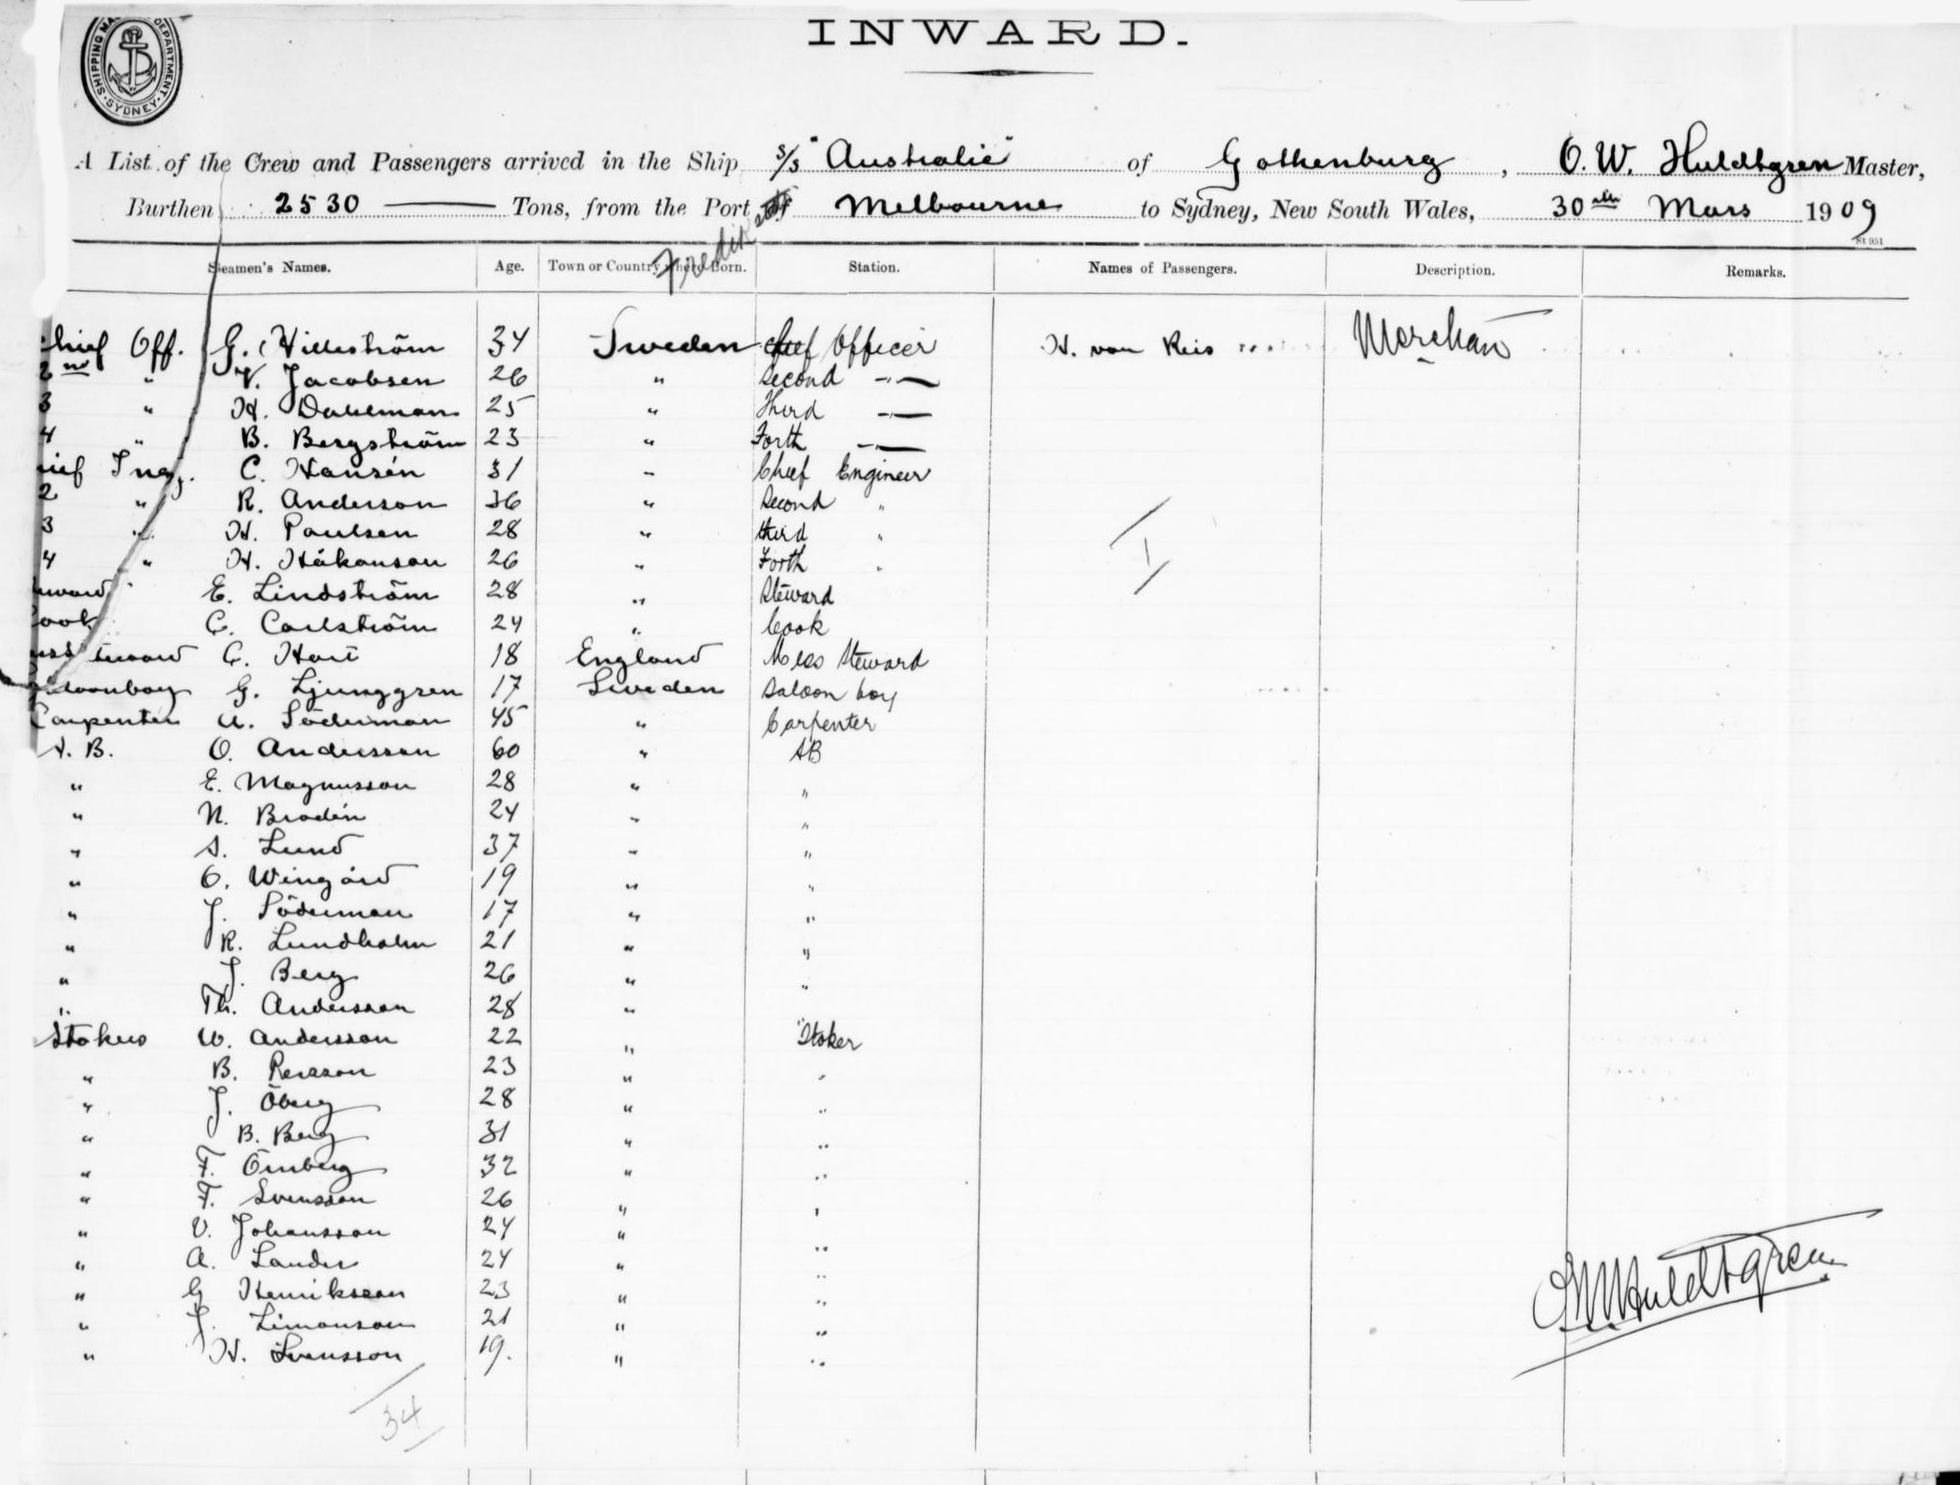 INWARD.
SHIPPING MA DEPARTMENT. SYDNEY.
A List of the Crew and Passengers arrived in the Ship S/S "Australie" of Gothenburg, O. W. Huldtgren Master,
Burthen 2530 Tons, from the Port of Melbourne to Sydney, New South Wales, 30 Mars 1909
St 951
Seamen's Names. Age. Town or Country where Born. Station. Names of Passengers. Description. Remarks.
hief Off. G. Villeström 34 Sweden Chief Officer H. von Reis Merchan
2nd " V. Jacobsen 26 " Second -"-
3 " H. Dahlman 25 " Third -"-
4 " B. Bergström 23 " Forth -"-
ief Ing. C. Hansén 31 " Chief Engineer
2 " R. Anderson 36 " Second "
3 " H. Paulsen 28 " third "
4 " H. Håkanson 26 " Forth "
E. Lindström 28 " Steward
ook C. Carlström 24 " Cook
steward C. Hart 18 England Mess Steward
loonboy G. Ljunggren 17 Sweden Saloon boy
Carpenter A. Söderman 45 " Carpenter
A. B. O. Andersson 60 " AB
" E. Magnusson 28 " "
" N. Brodén 24 " "
" S. Lund 37 " "
" O. Wingård 19 " "
" J. Söderman 17 " "
" R. Lundholm 21 " "
" J. Berg 26 " "
" Th. Andersson 28 " "
Stokers W. Andersson 22 " Stoker
" B. Persson 23 " "
" J. Öberg 28 " "
" B. Berg 31 " "
" F. Örnberg 32 " "
" F. Svensson 26 " "
" V. Johansson 24 " "
" A. Lander 24 " "
" G Henriksson 23 " "
" J. Simonson 21 " "
" H. Svensson 19. " "
34
OWHuldtgren